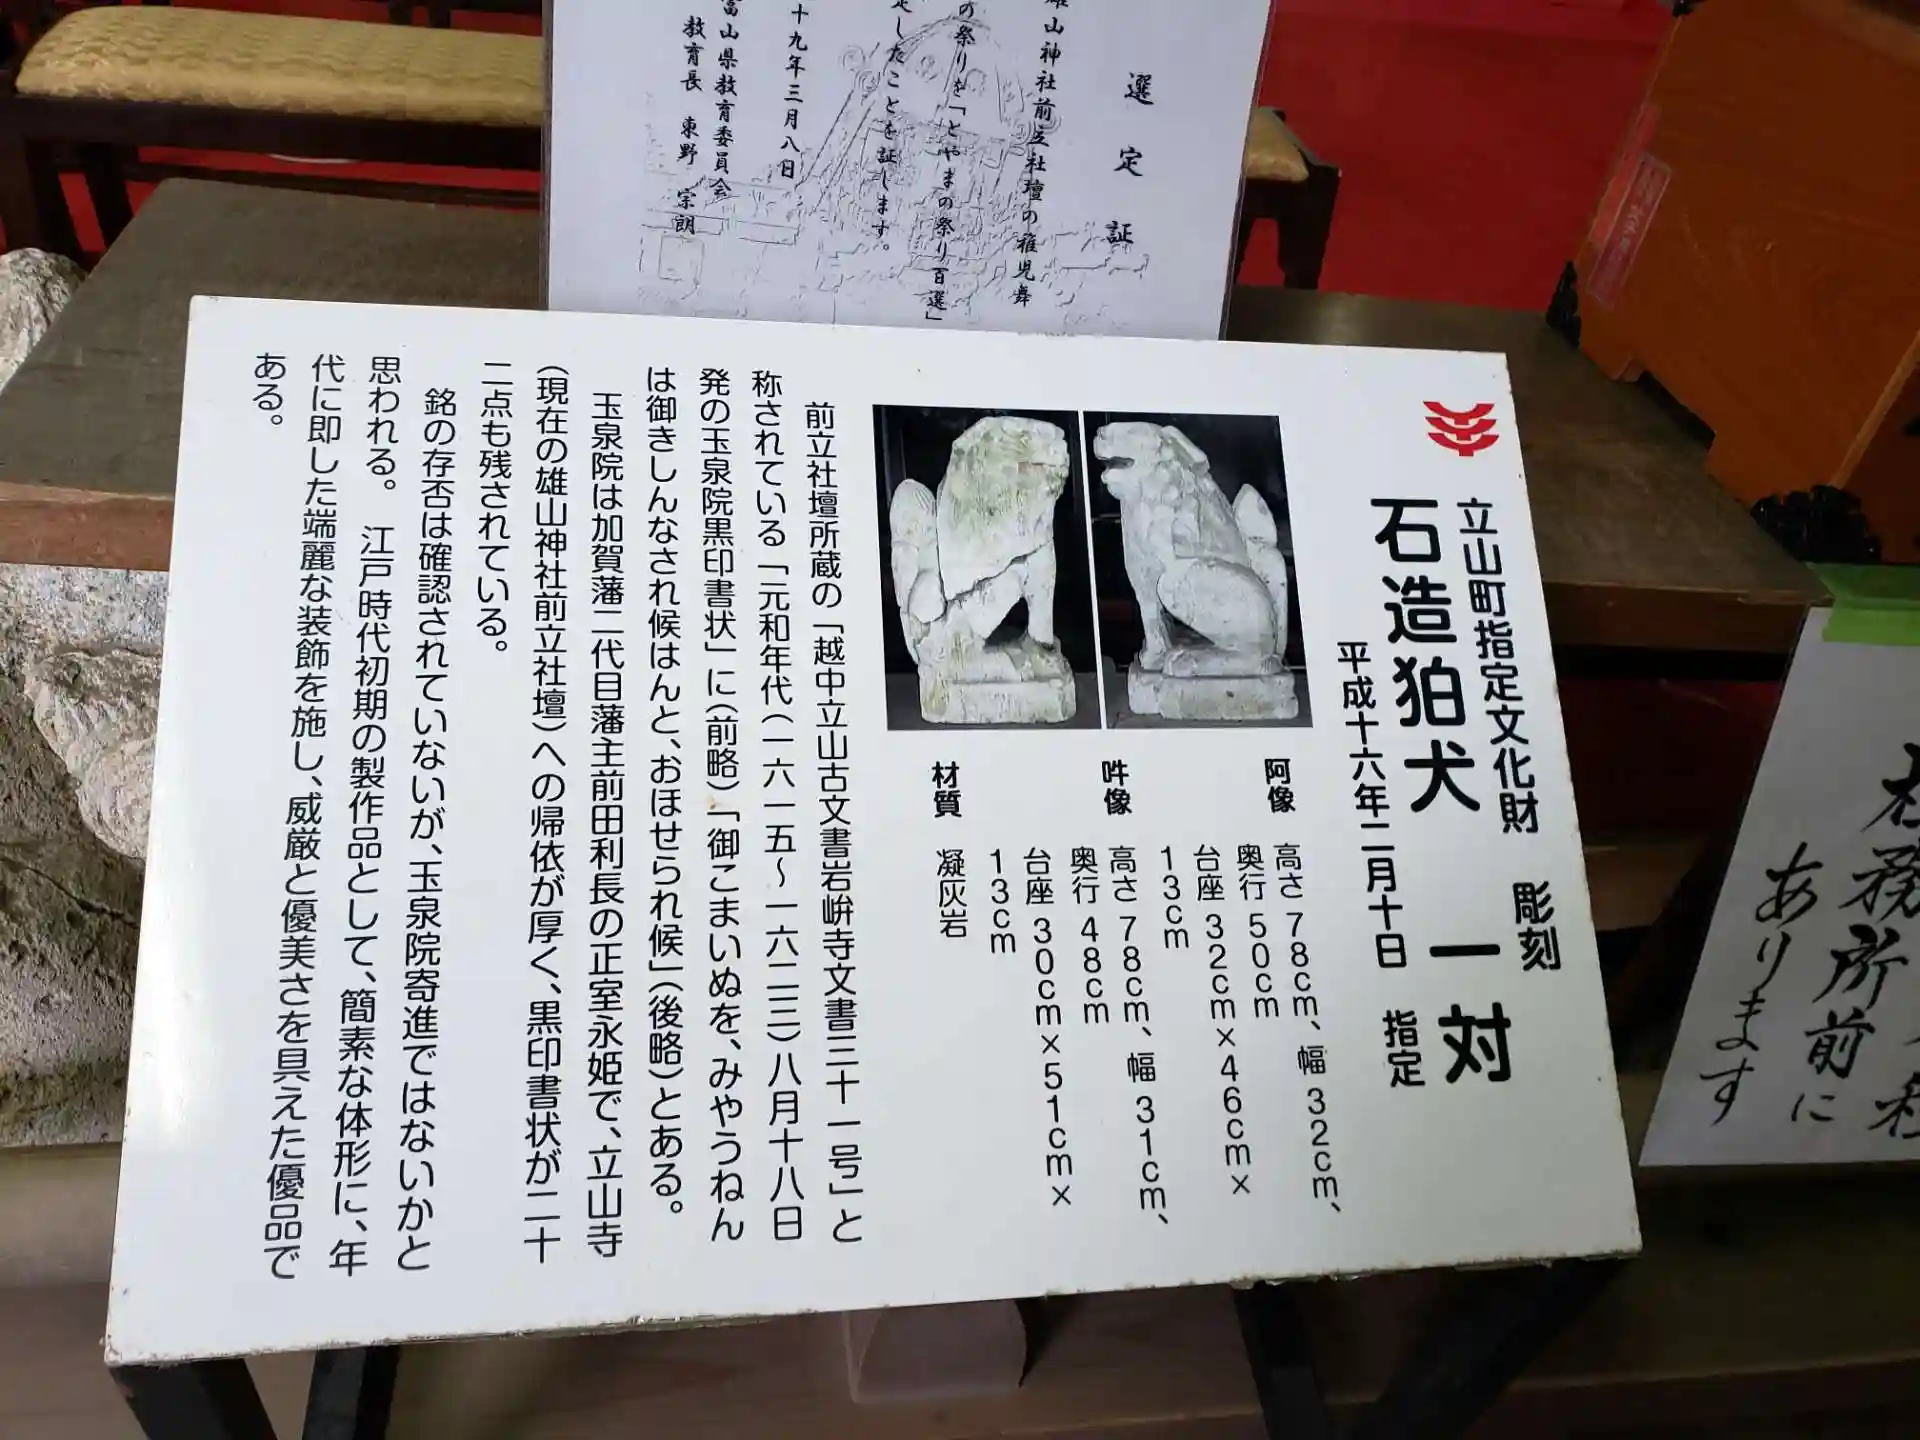 選定証
雄山神社前立社壇の稚児舞
の祭りを「とやまの祭り百選」
定したことを証します。
十九年三月八日
富山県教育委員会
教育長 東野 宗朗
立山町指定文化財 彫刻
石造狛犬 一対
平成十六年二月十日 指定
阿像 高さ 78cm、幅 32cm、
奥行 50cm
台座 32cm×46cm×
13cm
吽像 高さ 78cm、幅 31cm、
奥行 48cm
台座 30cm×51cm×
13cm
材質 凝灰岩
前立社壇所蔵の「越中立山古文書岩峅寺文書三十一号」と
称されている「元和年代(一六一五～一六二三)八月十八日
発の玉泉院黒印書状」に(前略)「御こまいぬを、みやうねん
は御きしんなされ候はんと、おほせられ候」(後略)とある。
玉泉院は加賀藩二代目藩主前田利長の正室永姫で、立山寺
(現在の雄山神社前立社壇)への帰依が厚く、黒印書状が二十
二点も残されている。
銘の存否は確認されていないが、玉泉院寄進ではないかと
思われる。 江戸時代初期の製作品として、簡素な体形に、年
代に即した端麗な装飾を施し、威厳と優美さを具えた優品で
ある。
社務所前に
あります